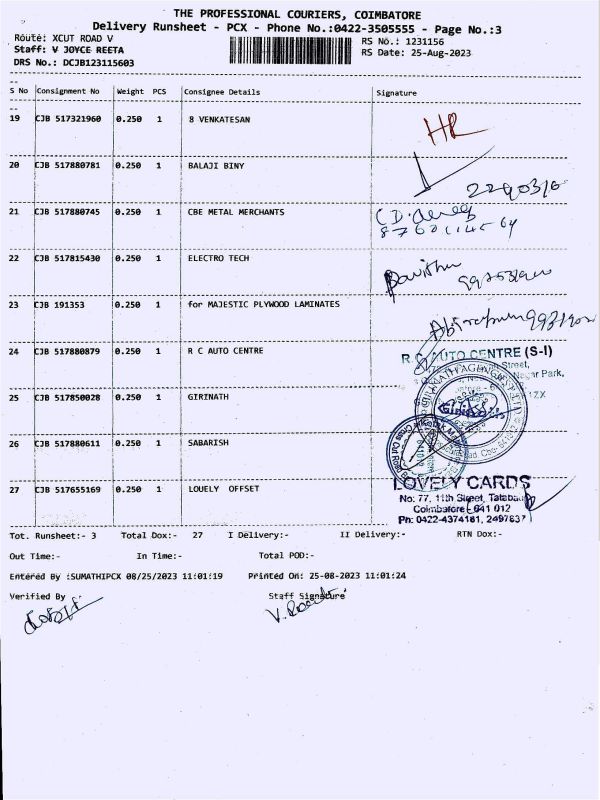 THE PROFESSIONAL COURIERS, COIMBATORE
Delivery Runsheet - PCX - Phone No.:0422-3505555 - Page No.:3
Route: XCUT ROAD V
RS No.: 1231156
Staff: V JOYCE REETA
RS Date: 25-Aug-2023
DRS No.: DCJB123115603
S No Consignment No Weight PCS Consignee Details Signature
19 CJB 517321960 0.250 1 8 VENKATESAN
20 CJB 517880781 0.250 1 BALAJI BINY
21 CJB 517880745 0.250 1 CBE METAL MERCHANTS
22 CJB 517815430 0.250 1 ELECTRO TECH
23 CJB 191353 0.250 1 for MAJESTIC PLYWOOD LAMINATES
24 CJB 517880879 0.250 1 R C AUTO CENTRE
AUTO CENTRE (S-I)
Street,
Park,
25 CJB 517850028 0.250 1 GIRINATH
26 CJB 517880611 0.250 1 SABARISH
27 CJB 517655169 0.250 1 LOUELY OFFSET
LOVELY CARDS
No: 77, 11th Street, Tatabad
Coimbatore - 641 012
Ph: 0422-4374181, 2497637
Tot. Runsheet:- 3 Total Dox:- 27 I Delivery:- II Delivery:- RTN Dox:-
Out Time:- In Time:- Total POD:-
Entered By :SUMATHIPCX 08/25/2023 11:01:19 Printed On: 25-08-2023 11:01:24
Verified By Staff Signature